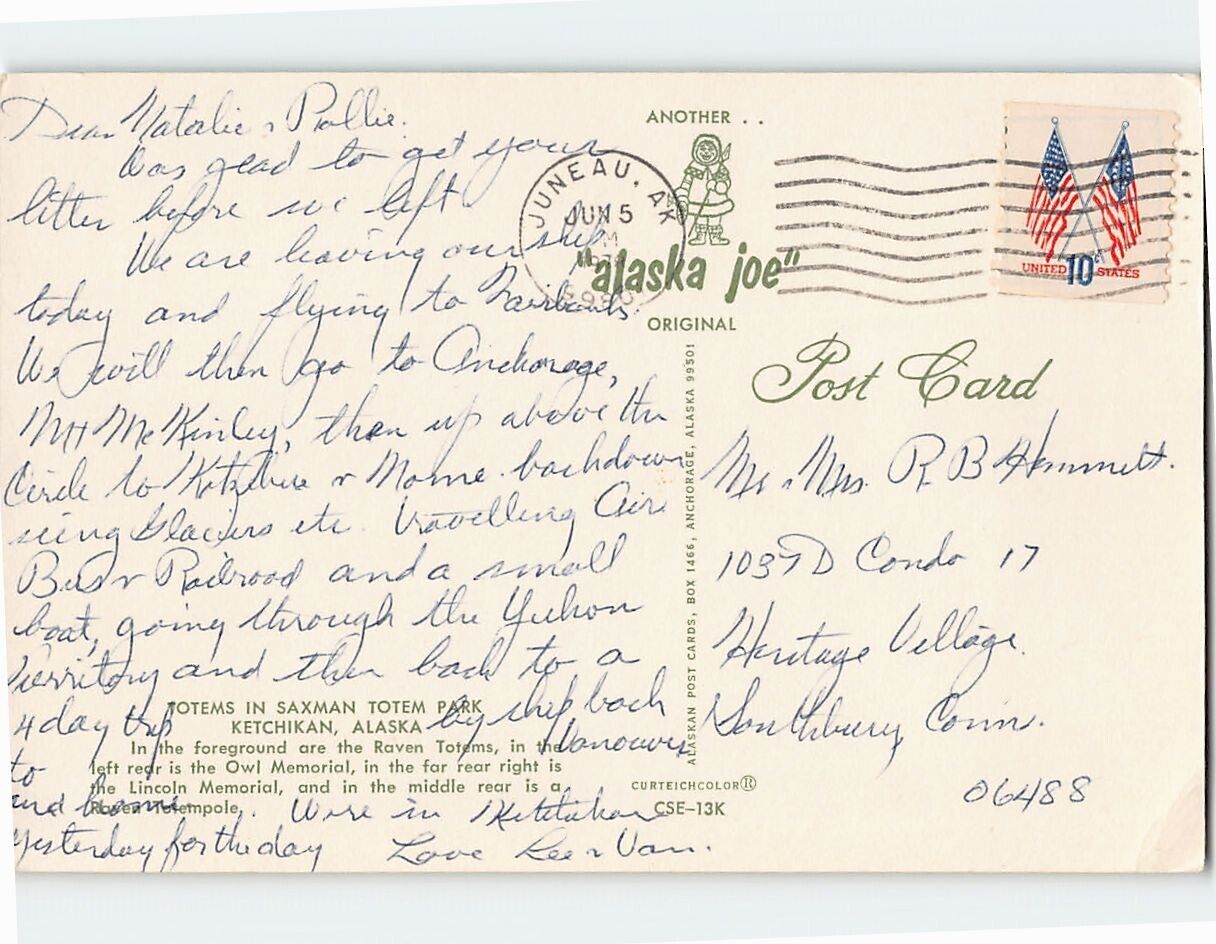 Dear Natalie & Pollie.
Was glad to get your
litter before we left
We are leaving our ship
today and flying to Fairbanks.
We will then go to Anchorage,
Mt McKinley, then up above the
Circle to Kotzebue & Nome. back down
seing Glaciers etc. Travelling Air.
Bus & Railroad and a small
boat, going through the Yukon
Territory and then back to a
4 day trip by ship back
to Vancouver
and home. Were in Ketchikan
yesterday for the day Love Lee & Van.
TOTEMS IN SAXMAN TOTEM PARK
KETCHIKAN, ALASKA
In the foreground are the Raven Totems, in the
left rear is the Owl Memorial, in the far rear right is
the Lincoln Memorial, and in the middle rear is a
Raven Totempole.
ANOTHER . .
"alaska joe"
ORIGINAL
JUNEAU, AK
JUN 5
UNITED 10¢ STATES
ALASKAN POST CARDS, BOX 1466, ANCHORAGE, ALASKA 99501
CURTEICHCOLOR®
CSE-13K
Post Card
Mr & Mrs. R B Hemmett.
Condo 17
Heritage Village.
Southbury Conn.
06488